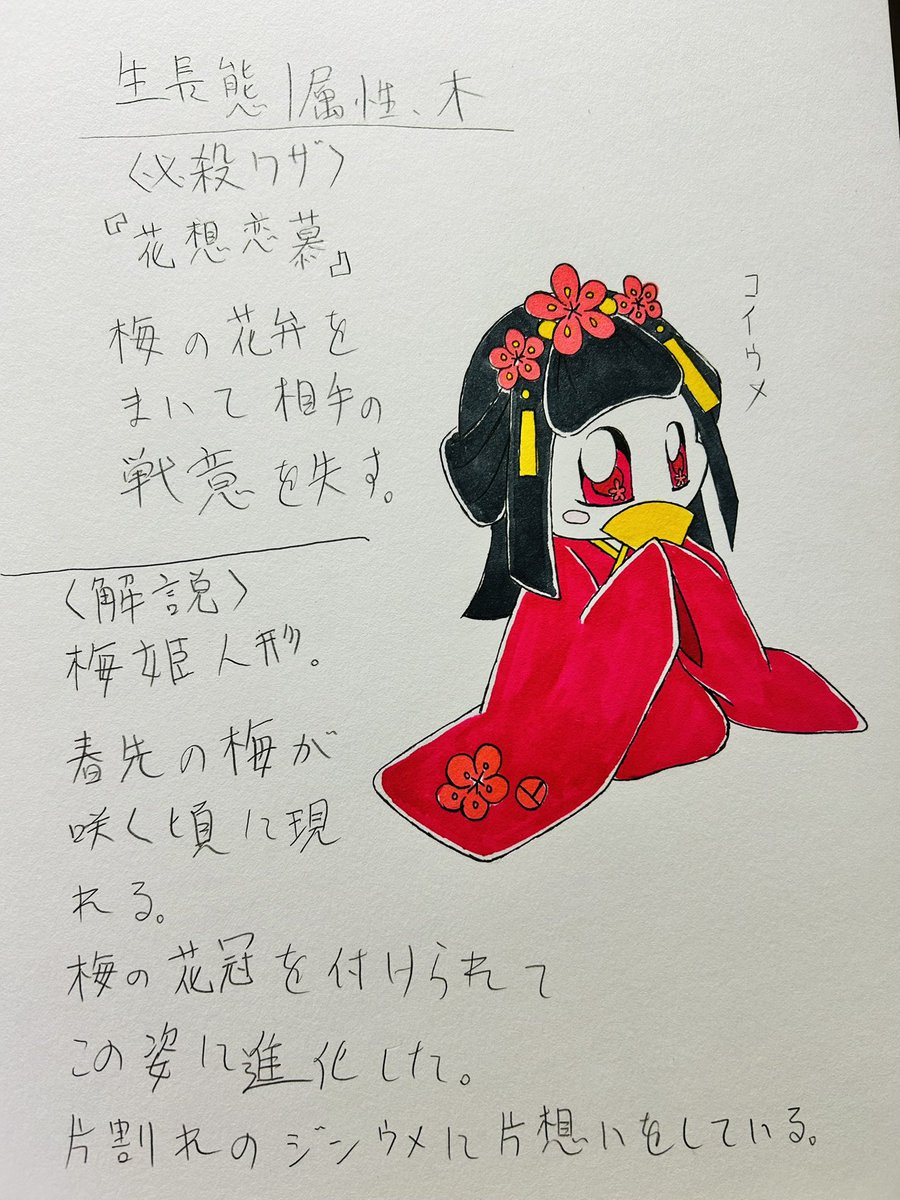 生長態|属性、木
〈必殺ワザ〉
『花想恋慕』
梅の花弁を
まいて相手の
戦意を失す。
コイウメ
〈解説〉
梅姫人形。
春先の梅が
咲く頃に現
れる。
梅の花冠を付けられて
この姿に進化した。
片割れのジンウメに片想いをしている。